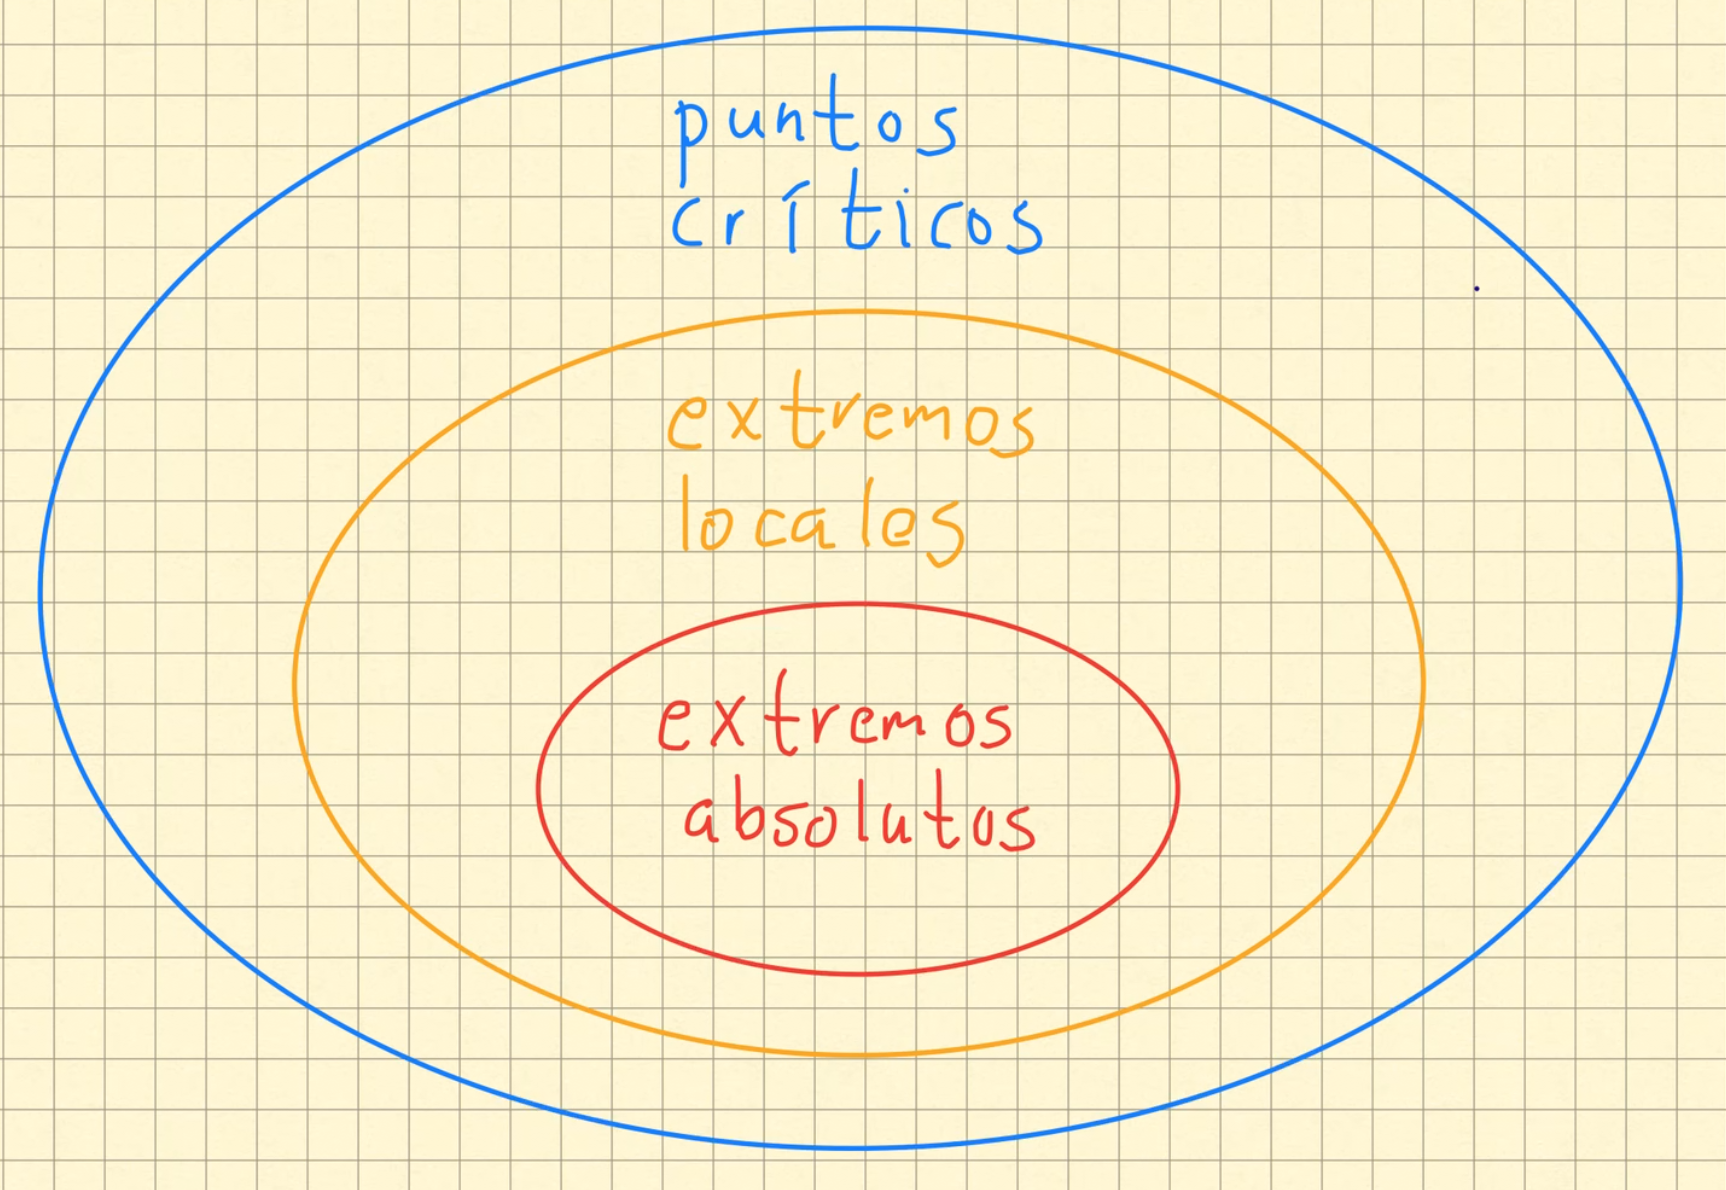 puntos
críticos
extremos
locales
extremos
absolutos